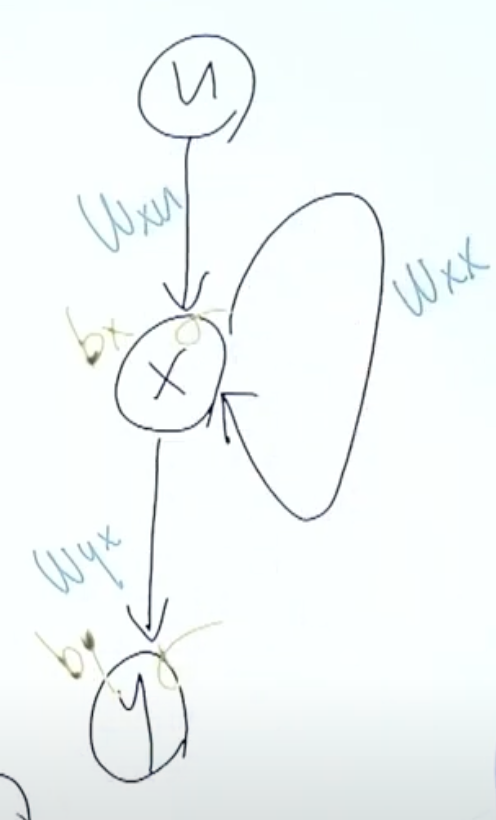 u
Wxu
Wxx
bx σ
x
Wyx
by σ
y